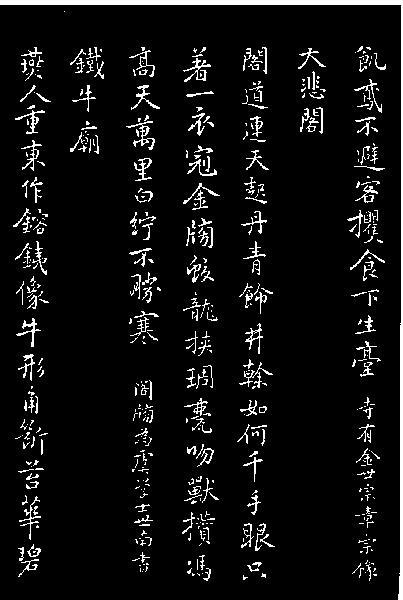 飢鳶不避客攫食下生臺 寺有金世宗章宗像
大悲閣
閣道連天起丹青飾井榦如何千手眼只
著一衣冠金牓蛟龍挾琱甍吻獸攢馮
高天萬里白紵不勝寒 閣牓為虞學士世南書
鐵牛廟
燕人重東作鎔銕像牛形角斷苔華碧